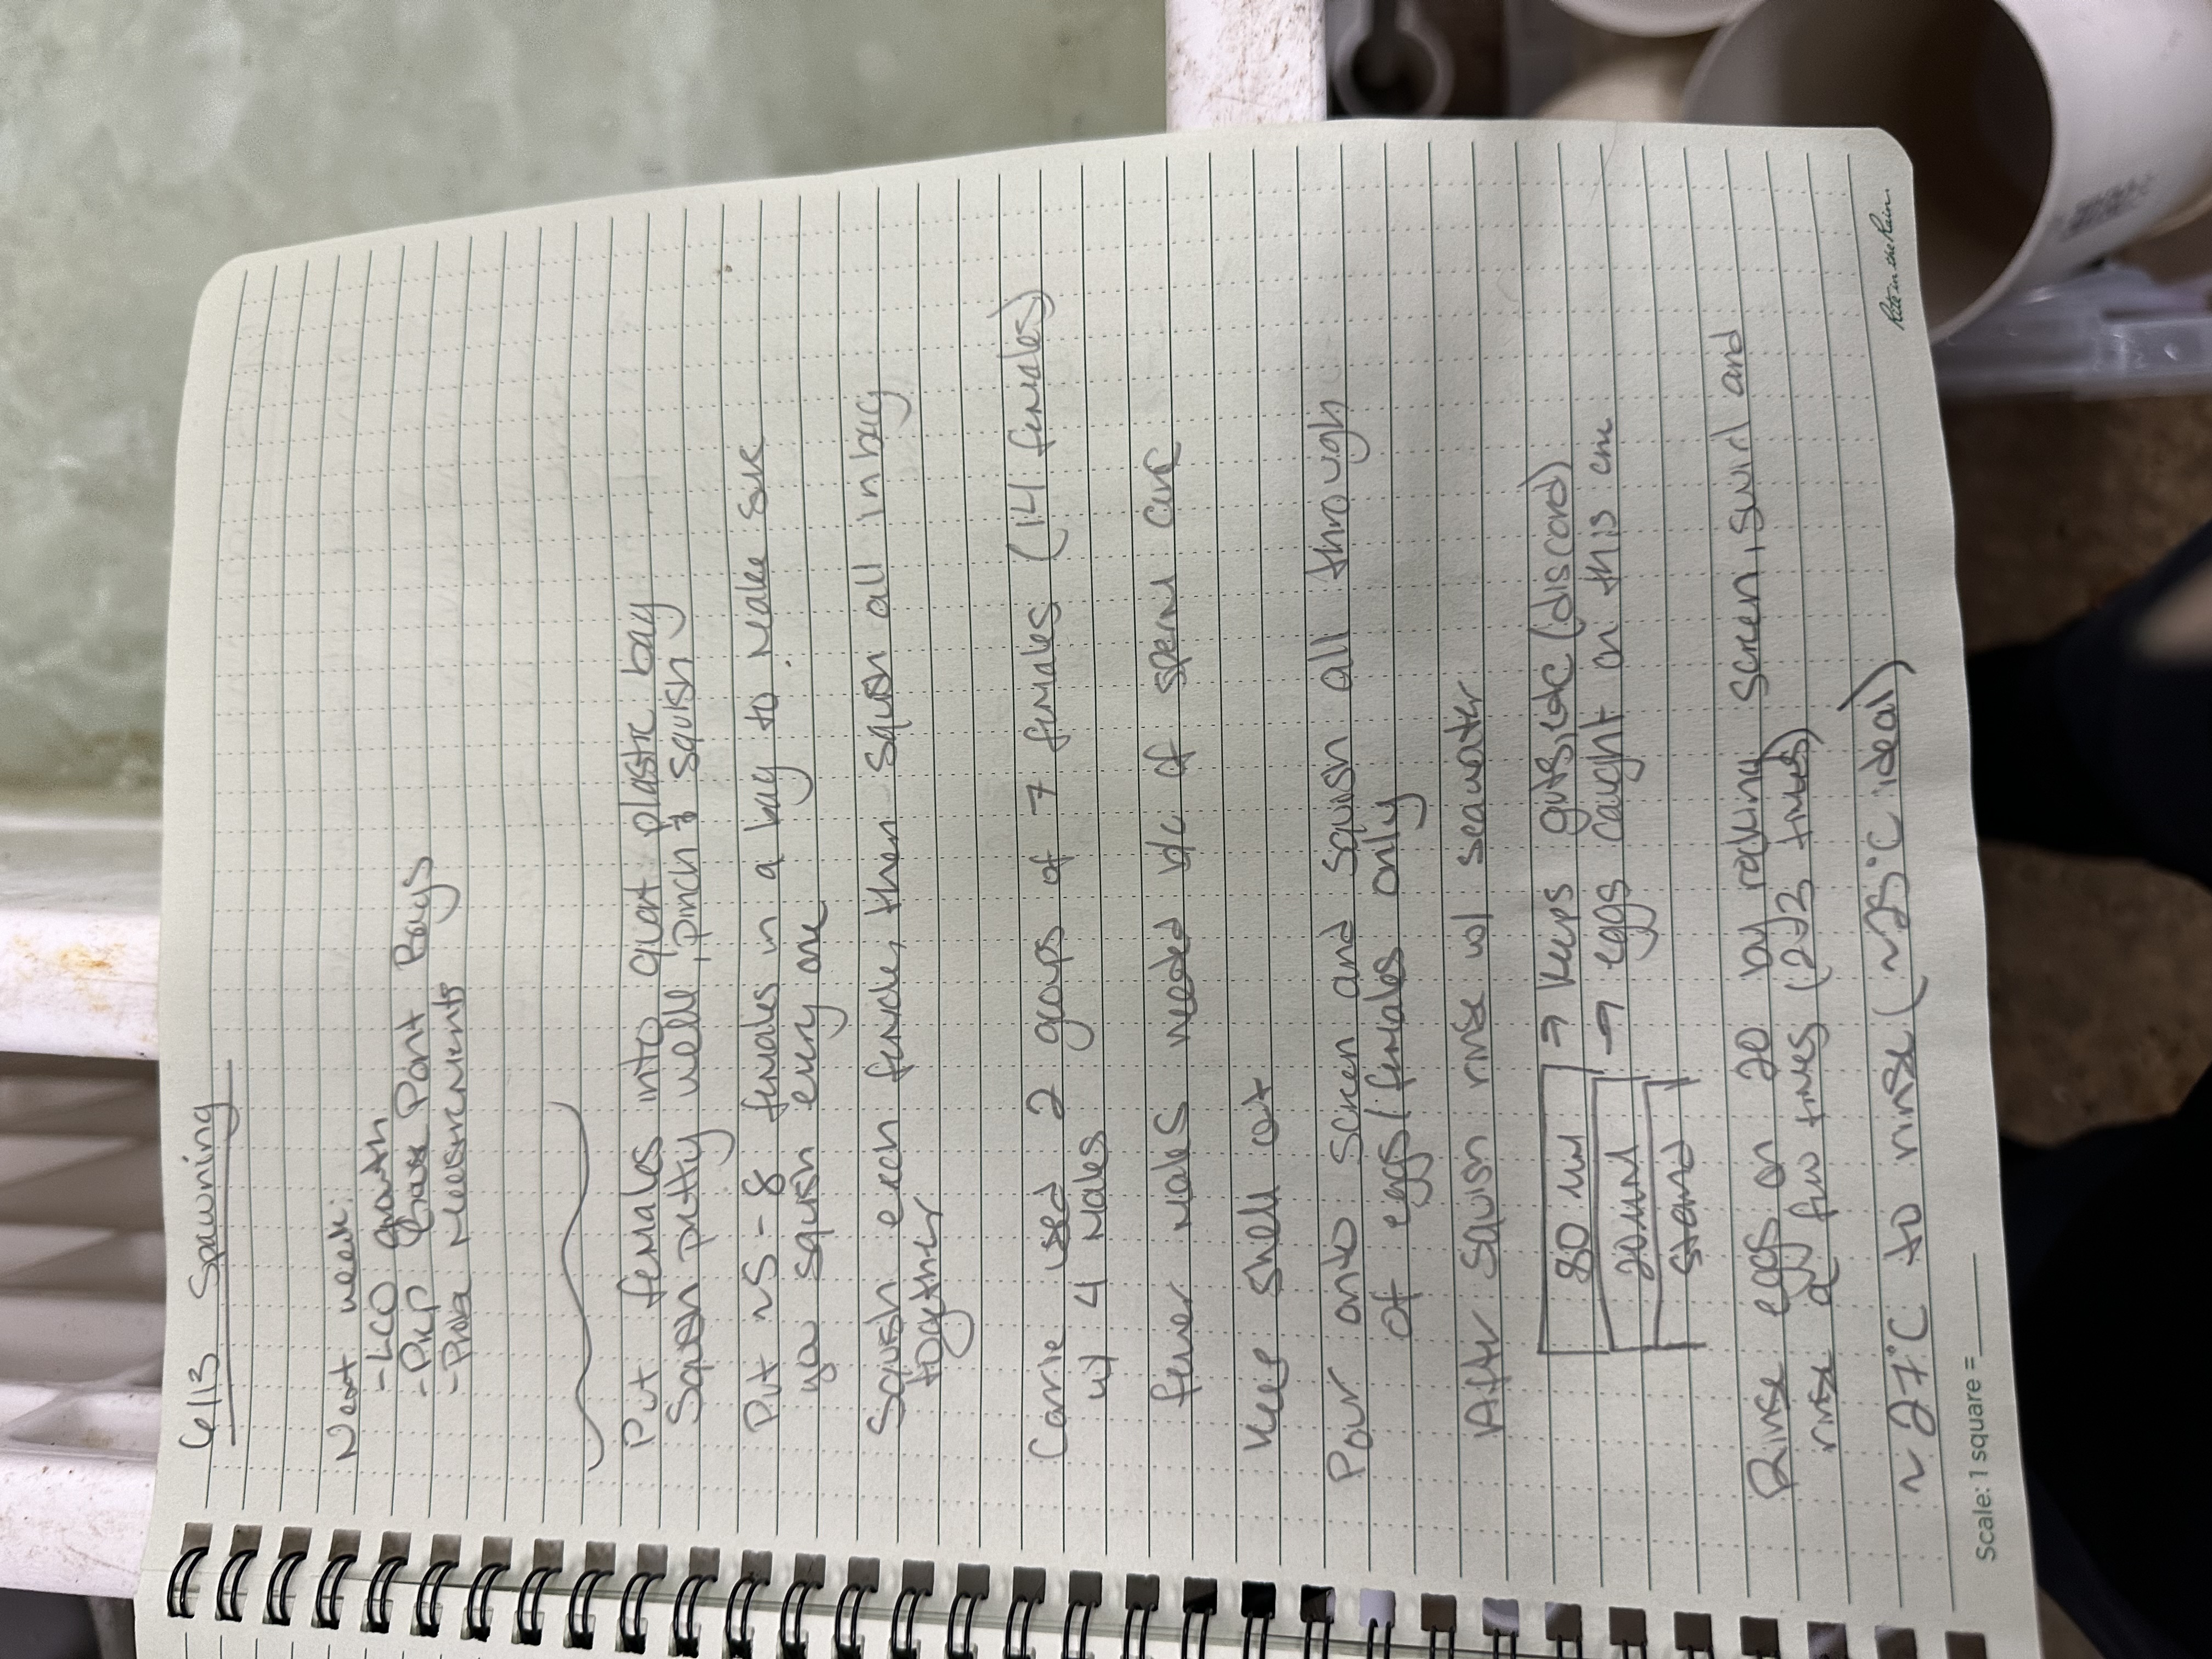 6/13 Spawning
Next week:
- LCO growth
- Prep Goose Point Bags
- Probe Measurements
Put females into quart plastic bag
Squish pretty well, pinch & squish
Put ~5-8 females in a bag to make sure
you squish every one
Squish each female, then squish all in bag
together
Carrie used 2 groups of 7 females (14 females)
w/ 4 males
fewer males needed b/c of sperm conc
Keep shell out
Pour onto screen and squish all through
of eggs/females only
After squish rinse w/ seawater
80 um → keeps guts, etc (discard)
20 um → eggs caught on this one
stand
Rinse eggs on 20 by rocking screen, swirl and
rinse a few times (2-3 times)
~27°C to rinse (~25°C ideal)
Rite in the Rain
Scale: 1 square =